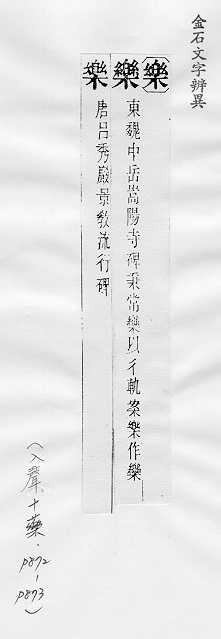 金石文字辨異
(樂)
樂 東魏中岳嵩陽寺碑秉常樂以軌案樂作樂
樂 唐呂秀巖景教流行碑
(入聲十藥.p872-p873)